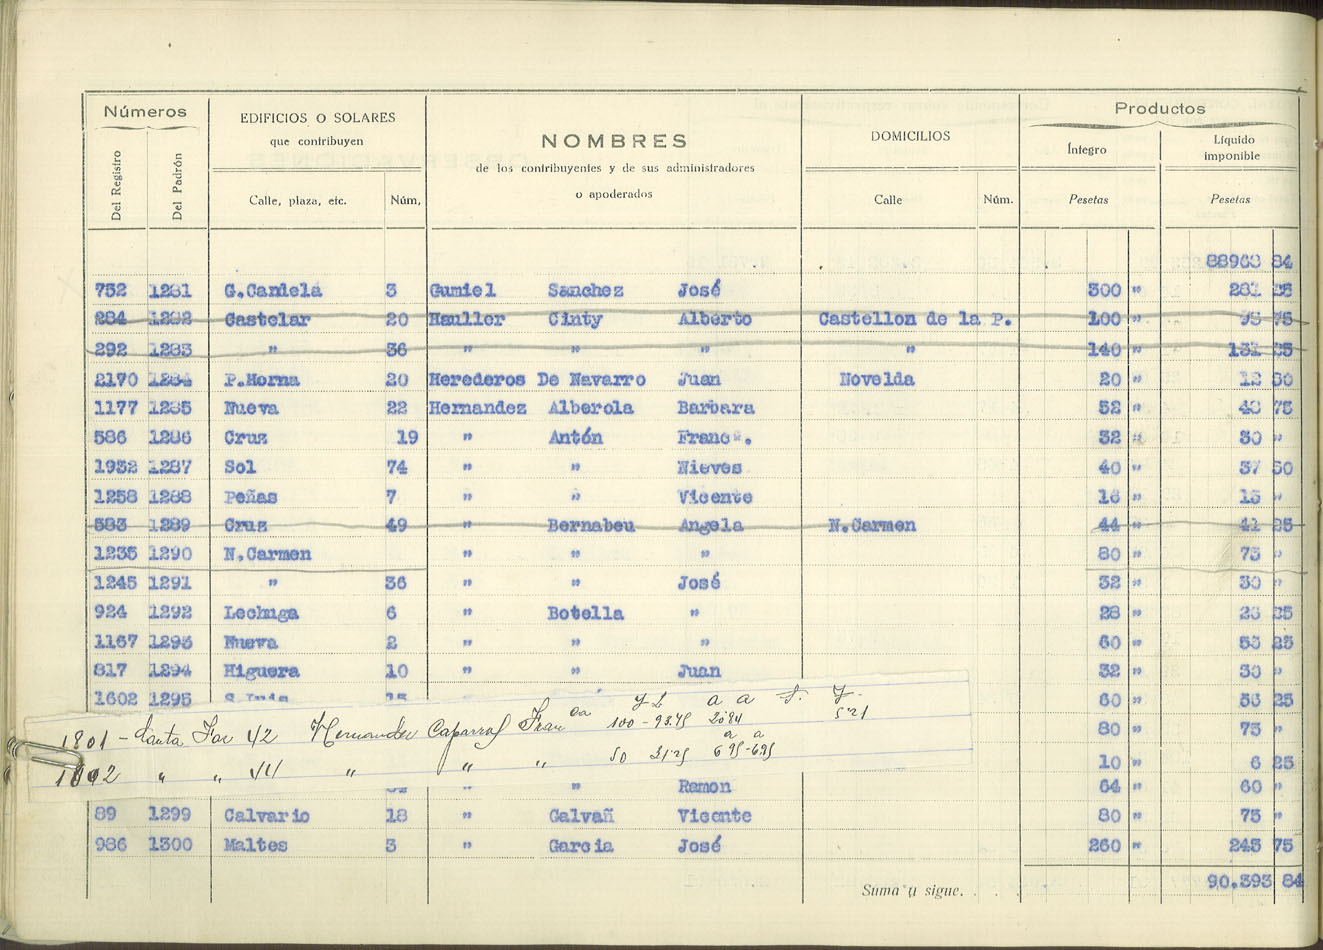 Números
EDIFICIOS O SOLARES
que contribuyen
NOMBRES
de los contribuyentes y de sus administradores
o apoderados
DOMICILIOS
Productos
Íntegro
Líquido
imponible
Del Registro
Del Padrón
Calle, plaza, etc.
Núm,
Calle
Núm.
Pesetas
Pesetas
88960 84
752 1281 G.Candela 3 Gumiel Sanchez José 300 " 281 25
284 1282 Castelar 20 Hauller Cinty Alberto Castellon de la P. 100 " 93 75
292 1283 " 36 " " " " 140 " 131 25
2170 1284 P.Horna 20 Herederos De Navarro Juan Novelda 20 " 12 50
1177 1285 Nueva 22 Hernandez Alberola Barbara 52 " 48 75
586 1286 Cruz 19 " Antón Franc". 32 " 30 "
1932 1287 Sol 74 " " Nieves 40 " 37 50
1258 1288 Peñas 7 " " Vicente 16 " 15 "
583 1289 Cruz 49 " Bernabeu Angela N.Carmen 44 " 41 25
1235 1290 N.Carmen " " " 80 " 75 "
1245 1291 " 36 " " José 32 " 30 "
924 1292 Lechuga 6 " Botella " 28 " 26 25
1167 1293 Nueva 2 " " " 60 " 56 25
817 1294 Higuera 10 " " Juan 32 " 30 "
1602 1295 S.Luis 15 60 " 56 25
1801 - Santa Faz 42 Hernandez Caparros Fran ca 100 - 93.75 80 " 75 "
1802 " " 44 " " " 50 31'25 6 95 - 6.95 10 " 6 25
" Ramon 64 " 60 "
89 1299 Calvario 18 " Galvañ Vicente 80 " 75 "
986 1300 Maltes 3 " Garcia José 260 " 243 75
Suma y sigue. 90.393 84